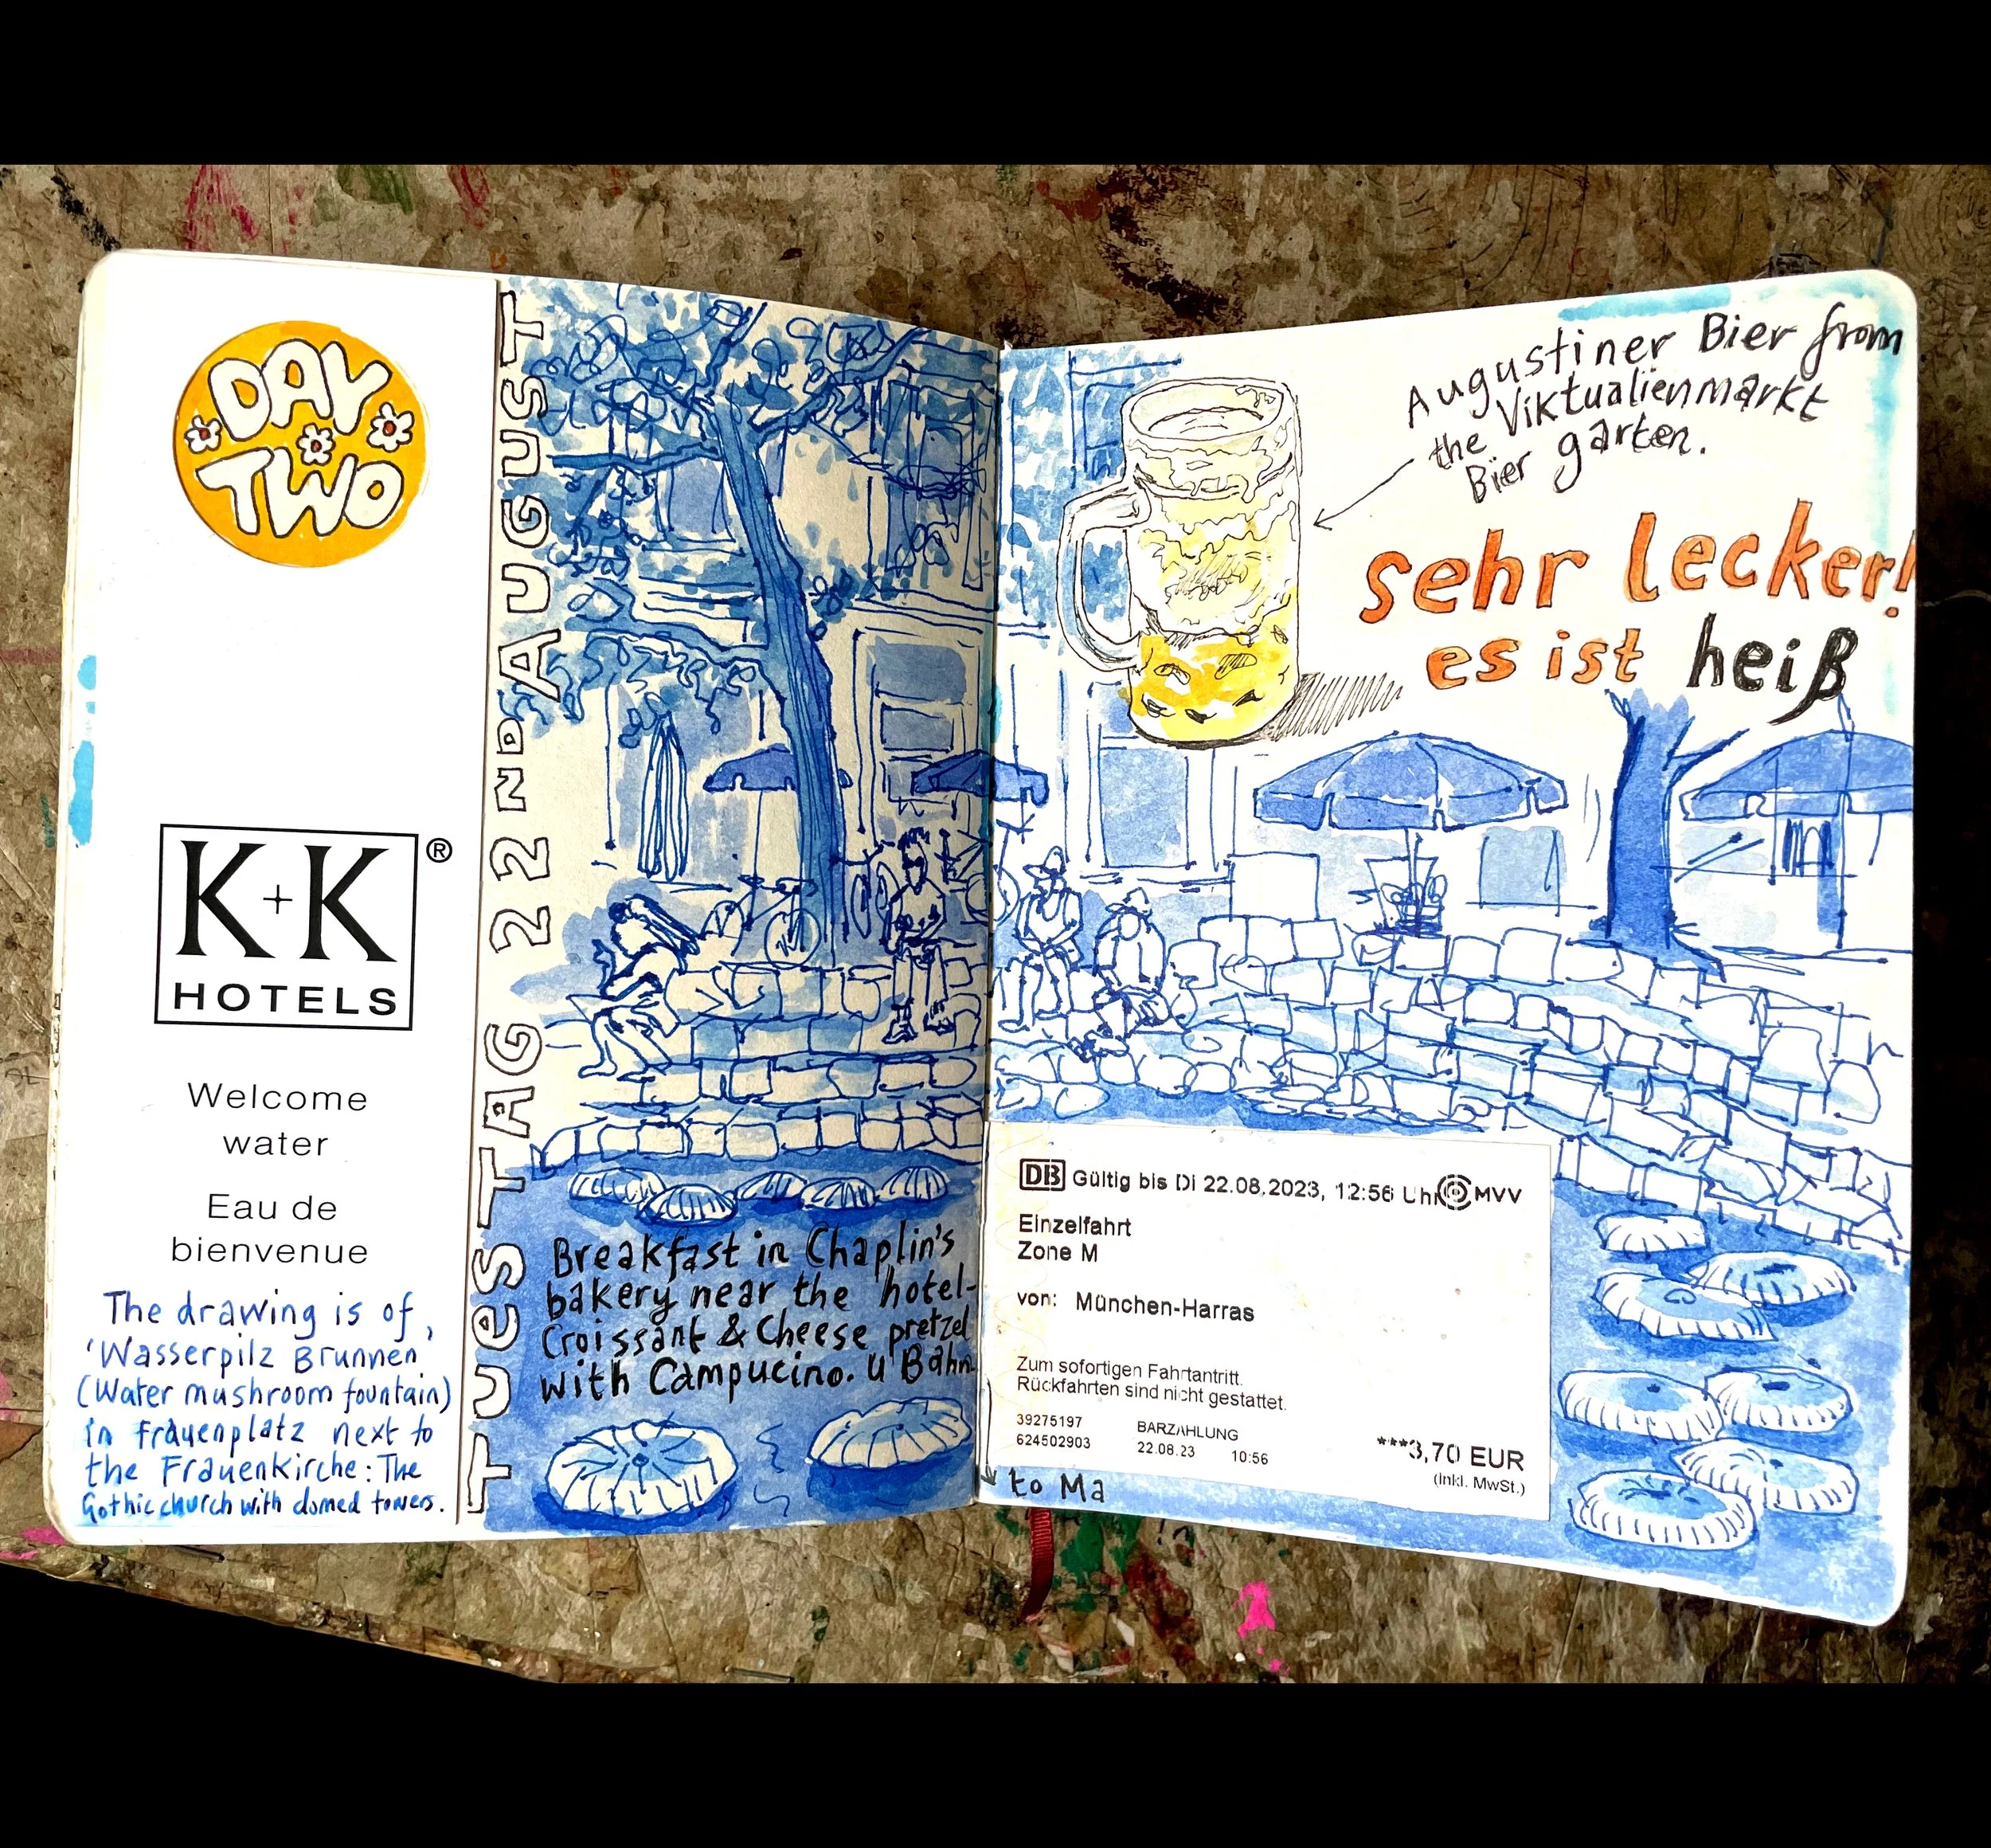 DAY
TWO
K+K®
HOTELS
Welcome
water
Eau de
bienvenue
The drawing is of,
'Wasserpilz Brunnen'
(Water mushroom fountain)
in Frauenplatz next to
the Frauenkirche: The
Gothic church with domed towers.
TUesTAG 22ND AUGUST
Breakfast in Chaplin's
bakery near the hotel-
Croissant & Cheese pretzel
with Campucino. U'Bahn
to Ma
Augustiner Bier from
the Viktualienmarkt
Bier garten.
sehr lecker!
es ist heiß
DB Gültig bis Di 22.08.2023, 12:56 Uhr MVV
Einzelfahrt
Zone M
von: München-Harras
Zum sofortigen Fahrtantritt.
Rückfahrten sind nicht gestattet.
39275197 BARZAHLUNG
624502903 22.08.23 10:56 ***3,70 EUR
(inkl. MwSt.)